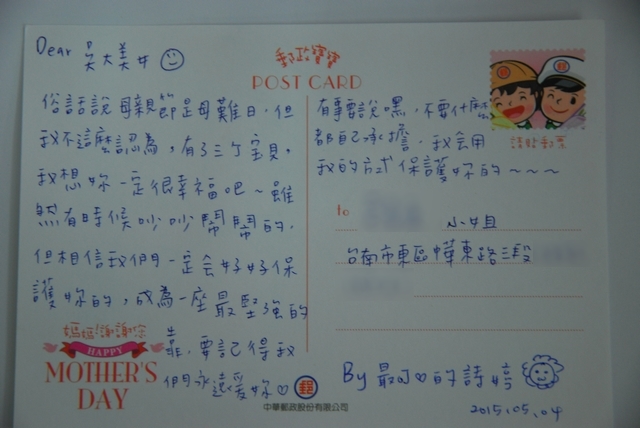 Dear 吳大美女
郵政寶寶
POST CARD
請貼郵票
俗話說母親節是母難日，但
我不這麼認為，有了三个宝貝，
我想妳一定很幸福吧～雖
然有時候吵吵鬧鬧的，
但相信我們一定会好好保
護妳的，成為一座最堅強的
靠，要記得我
們永遠愛妳♡
有事要說嘿，不要什麼
都自己承擔，我会用
我的方式保護妳的～～～
to
小姐
台南市東區中華東路三段
媽媽!謝謝您
HAPPY
MOTHER'S
DAY
郵
中華郵政股份有限公司
By 最可♡的詩婷
2015.05.04